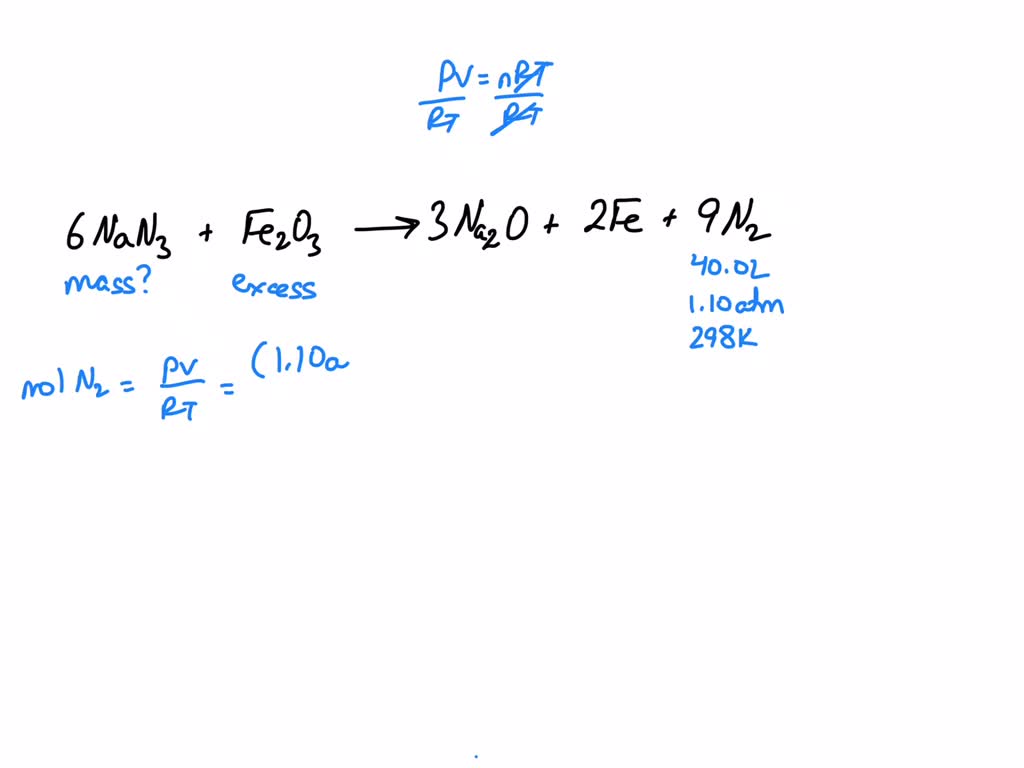 PV = nRT
RT RT
6NaN₃ + Fe₂O₃ → 3Na₂O + 2Fe + 9N₂
mass? excess 40.0L
1.10atm
298K
mol N₂ = PV/RT = (1.10a